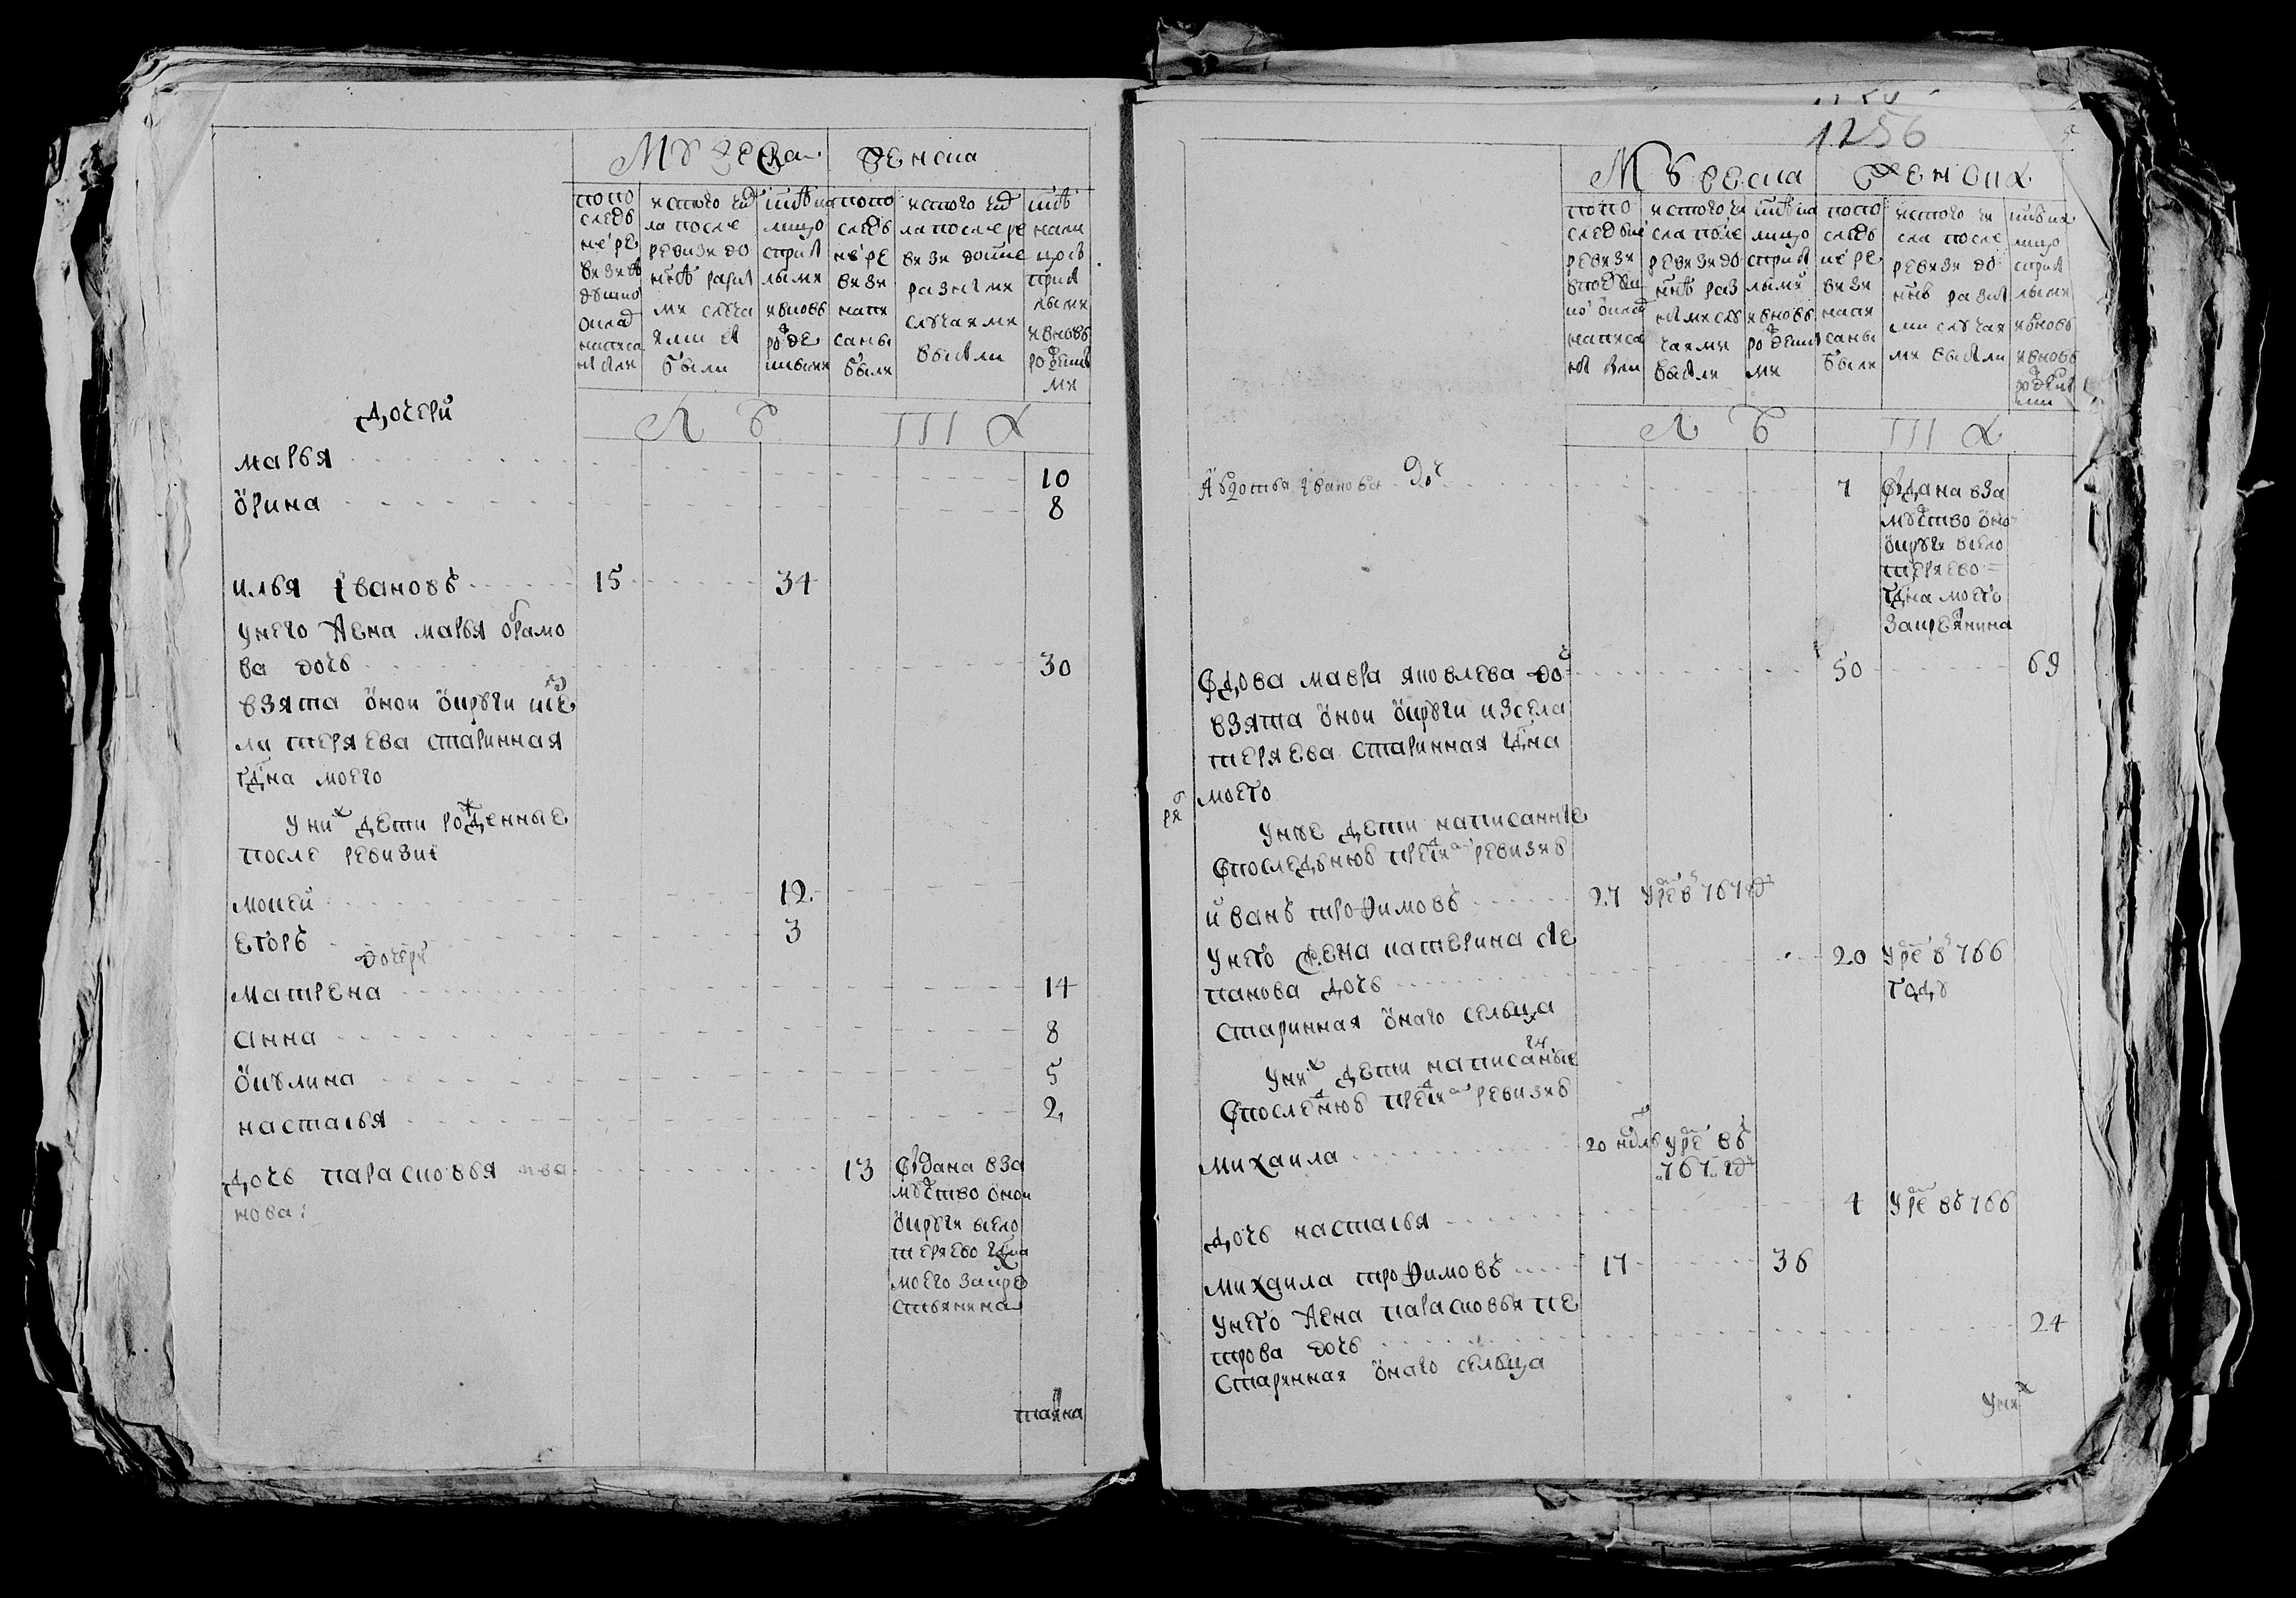 Мужеска
Женска
попо
следъ
не ре
визиі
душъ
оклад
написа
ны были
ис того чис
ла после
ревизи до
ныне разны
ми случа
ями вы
были
ныне на
лицо
с прибы
лыми
и вновь
рожде
нными
попо
следъ
не ре
визи
напи
саны
были
ис того чис
ла после ре
визи до ныне
разными
случаями
выбыли
ныне
нали
цо съ
прибы
лыми
и вновь
рожденны
ми
Л Ѣ
Т А
дочери
марья 10
орина 8
илья Ивановъ 15 34
у него жена марья абрамо
ва дочь 30
взята оной округи и се
ла теряева старинная
гдна моего
у них дети рожденные
после ревизиі
мокей 12
егоръ 3
дочери
матрена 14
анна 8
окулина 5
настасья 2
дочь парасковья ива 13
нова
отдана вза
мужство оной
округи в село
теряево гдна
моего за кре
стьянина
1256
Мужеска
Женска
попо
следъней
ревизи
подуш
но оклад
написа
ны были
ис того чи
сла после
ревизи до
ныне раз
ными слу
чаями
выбыли
ныне на
лицо
с прибы
лыми
и вновь
рожденны
ми
попо
следъ
не ре
визи
напи
саны
были
ис того чи
сла после
ревизи до
ныне разны
ми случая
ми выбыли
ныне на
лицо
с прибы
лыми
и вновь
рожденны
ми
Л Ѣ
Т А
Авдотья Иванова доч 7
отдана вза
мужство оно
округи в село
теряево
гдна моего
за крестьянина
вдова мавра яковлева до 50 69
взята оной округи из села
теряева старинная гдна
моего
у нее дети написанные
в последънюю пред сим ревизию
иванъ трофимовъ 27 умре в 767 году
у него жена катерина сте
панова дочь 20 умре в 766
году
старинная онаго сельца
у них дети написаные
в последнюю пред сим ревизию
михаила 20 недль умре въ
767 году
дочь настасья 4 умре въ 766
михаила трофимовъ 17 36
у него жена парасковья пе
трова дочь 24
старинная онаго сельца
у них